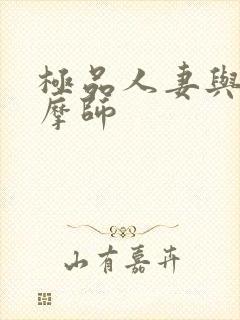 極品人妻與
摩師
山有嘉卉